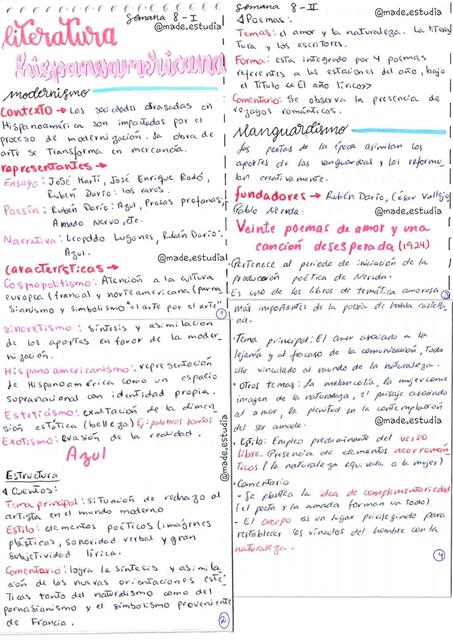 Semana 8 - I
@made.estudia
literatura
hispanoamericana
modernismo
Contexto → Las sociedades atrasadas en
Hispanoamérica son impactadas por el
proceso de modernización. La obra de
arte se transforma en mercancía.
representantes →
Ensayo: José Martí, José Enrique Rodó,
Rubén Darío: los raros.
Poesía: Rubén Darío: Azul, Prosas profanas,
Amado Nervo, etc.
@made.estudia
Narrativa: Leopoldo Lugones, Rubén Darío:
Azul.
@made.estudia
características →
Cosmopolitismo: Atención a la cultura
europea (francia) y norteamericana (parna
sianismo y simbolismo "el arte por el arte")
1
sincretismo: síntesis y asimilación
de los aportes en favor de la moder-
nización.
Hispanoamericanismo: representación
de Hispanoamérica como un espacio
supranacional con identidad propia.
Esteticismo: exaltación de la dimen
sión estética (belleza) Ej: palabras bonitas
Exotismo: Evasión de la realidad.
@made.estudia
Azul
Estructura
Cuentos:
Tema principal: situación de rechazo al
artista en el mundo moderno
Estilo: elementos poéticos (imágenes
plásticas, sonoridad verbal y gran
subjetividad lírica.
Comentario: logra la síntesis y asimila
ción de las nuevas orientaciones esté-
ticas tanto del naturalismo como del
parnasianismo y el simbolismo proveniente
de Francia.
2
@made.estudia
Semana 8 - II
Poemas:
@made.estudia
Temas: el amor y la naturaleza. La litera
tura y los escritores.
Forma: está integrado por 4 poemas
referentes a las estaciones del año, bajo
el título <<El año lírico>>
Comentario: Se observa la presencia de
rezagos románticos.
Vanguardismo
Los poetas de la época asimilan los
aportes de las vanguardias y los reformu
lan creativamente.
fundadores → Rubén Darío, César Vallejo,
Pablo Neruda.
@made.estudia
Veinte poemas de amor y una
canción desesperada (1924)
Pertenece al periodo de iniciación de la
producción poética de Neruda.
Es uno de los libros de temática amorosa
3
más importantes de la poesía de habla castella
na.
Tema principal: El amor asociado a la
lejanía y al fracaso de la comunicación, todo
ello vinculado al mundo de la naturaleza.
Otros temas: La melancolía, la mujer como
imagen de la naturaleza, el paisaje asociado
al amor, la plenitud en la contemplación
del ser amado.
@made.estudia
Estilo: Empleo predominante del verso
libre. Presencia de elementos neorromán
ticos (la naturaleza equivale a la mujer)
Comentario
- Se plantea la idea de complementariedad
(el poeta y la amada forman un todo)
- El cuerpo es un lugar privilegiado para
restablecer los vínculos del hombre con la
naturaleza.
4